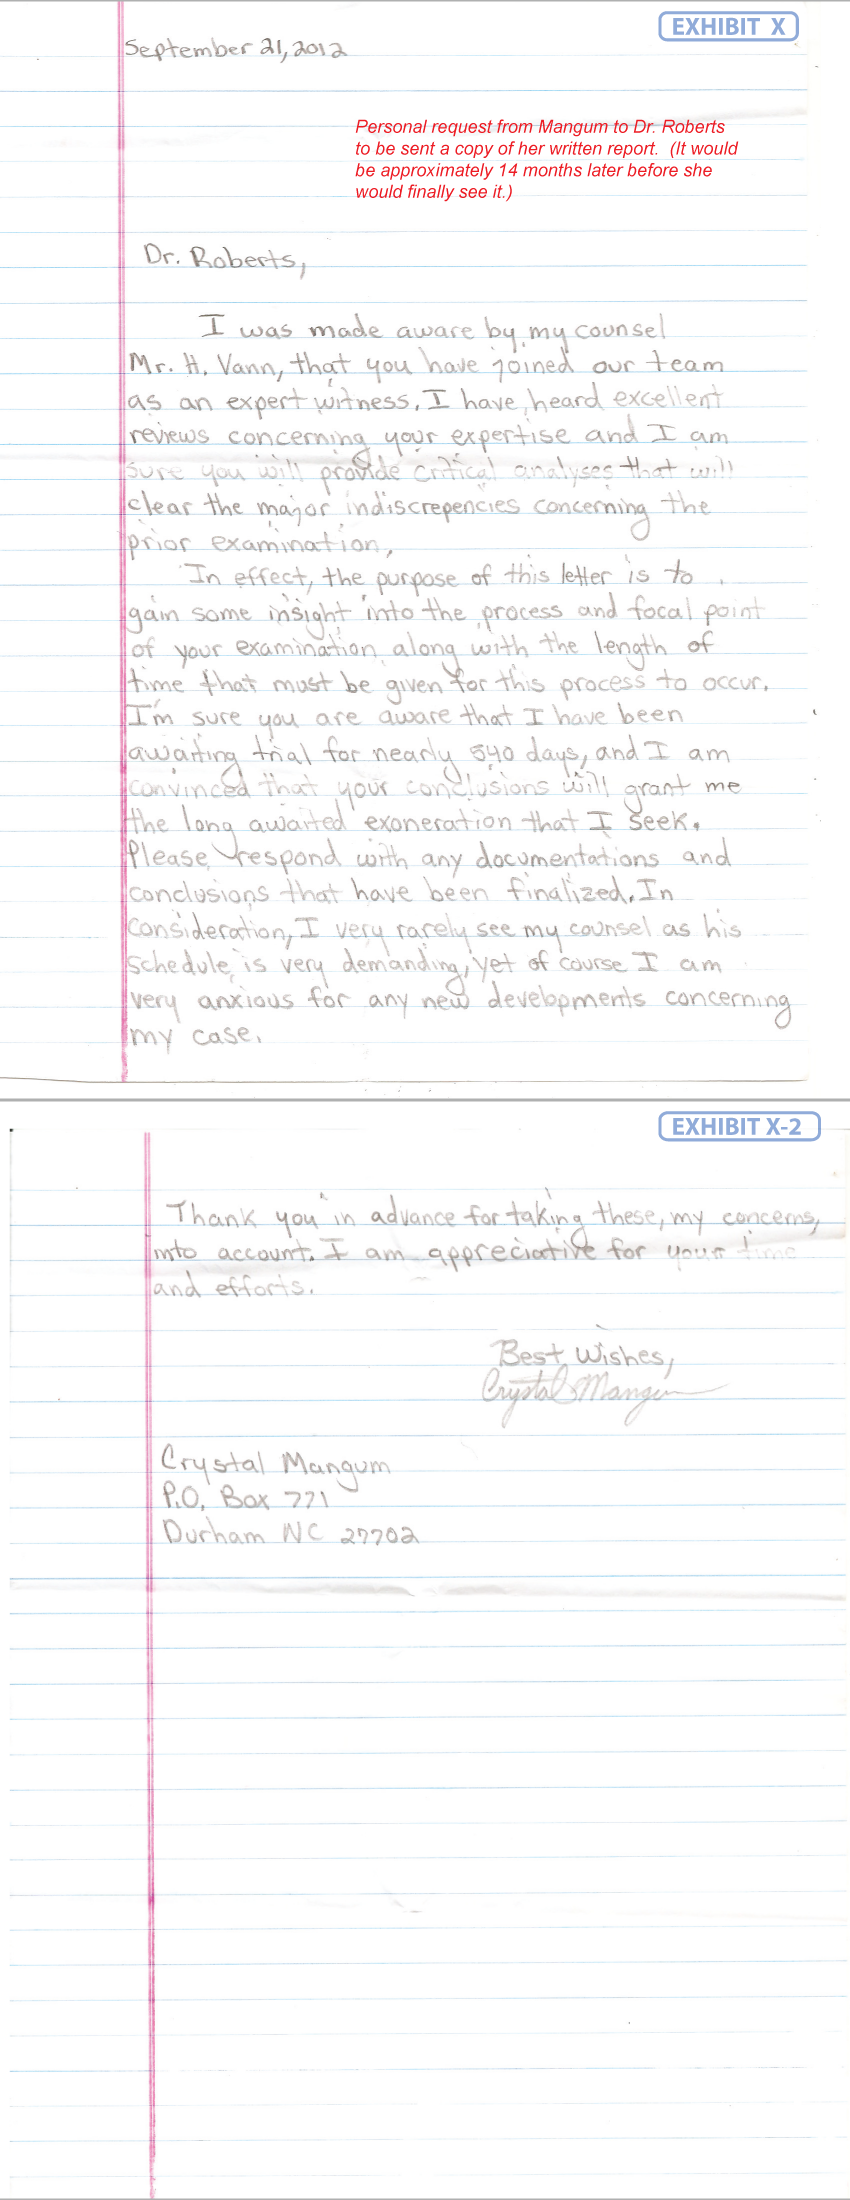 EXHIBIT X
September 21, 2012
Personal request from Mangum to Dr. Roberts
to be sent a copy of her written report. (It would
be approximately 14 months later before she
would finally see it.)
Dr. Roberts,
I was made aware by my counsel
Mr. H. Vann, that you have joined our team
as an expert witness. I have heard excellent
reviews concerning your expertise and I am
sure you will provide critical analyses that will
clear the major indiscrepencies concerning the
prior examination.
In effect, the purpose of this letter is to
gain some insight into the process and focal point
of your examination along with the length of
time that must be given for this process to occur.
I'm sure you are aware that I have been
awaiting trial for nearly 540 days, and I am
convinced that your conclusions will grant me
the long awaited exoneration that I seek.
Please respond with any documentations and
conclusions that have been finalized. In
consideration, I very rarely see my counsel as his
schedule is very demanding, yet of course I am
very anxious for any new developments concerning
my case.
EXHIBIT X-2
Thank you in advance for taking these, my concerns,
into account. I am appreciative for your time
and efforts.
Best Wishes,
Crystal Mangum
Crystal Mangum
P.O. Box 771
Durham NC 27702